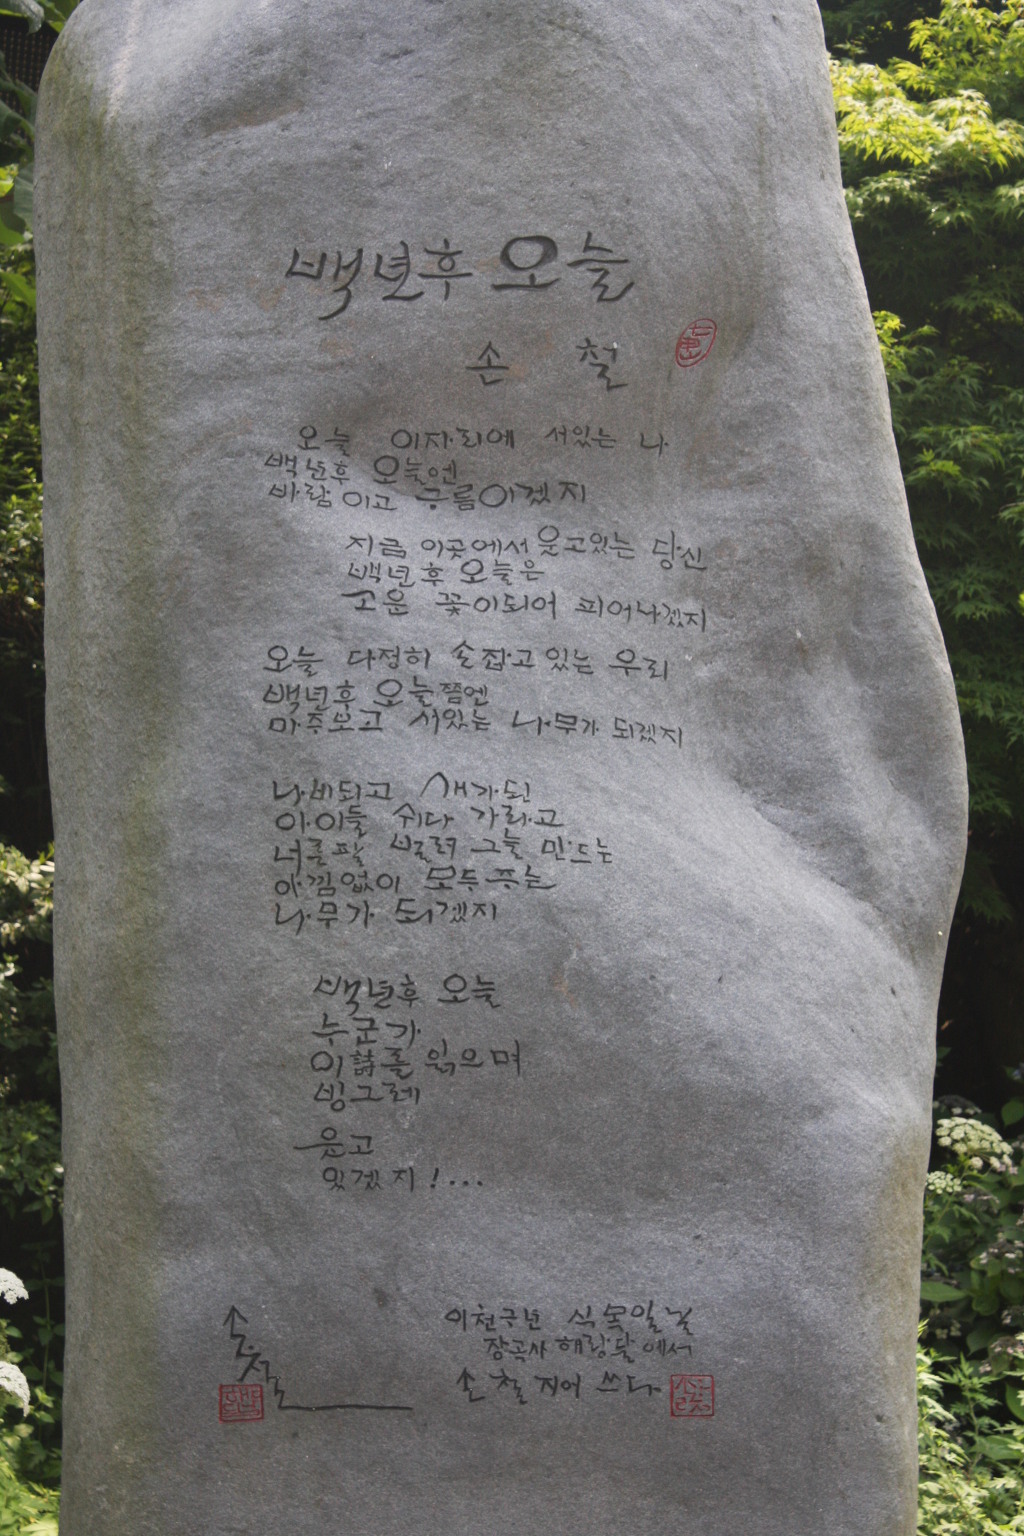 백년후 오늘
손 철
오늘 이자리에 서있는 나
백년후 오늘엔
바람이고 구름이겠지
지금 이곳에서 웃고있는 당신
백년후 오늘은
고운 꽃이되어 피어나겠지
오늘 다정히 손잡고 있는 우리
백년후 오늘쯤엔
마주보고 서있는 나무가 되겠지
나비되고 새가된
아이들 쉬다 가라고
너른팔 벌려 그늘 만드는
아낌없이 모두주는
나무가 되겠지
백년후 오늘
누군가
이詩를 읽으며
빙그레
웃고
있겠지!...
손철
이천구년 식목일날
장곡사 해랑달에서
손철 지어 쓰다